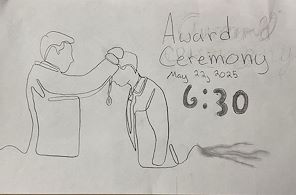 Award
Ceremony
May 22, 2025
6:30